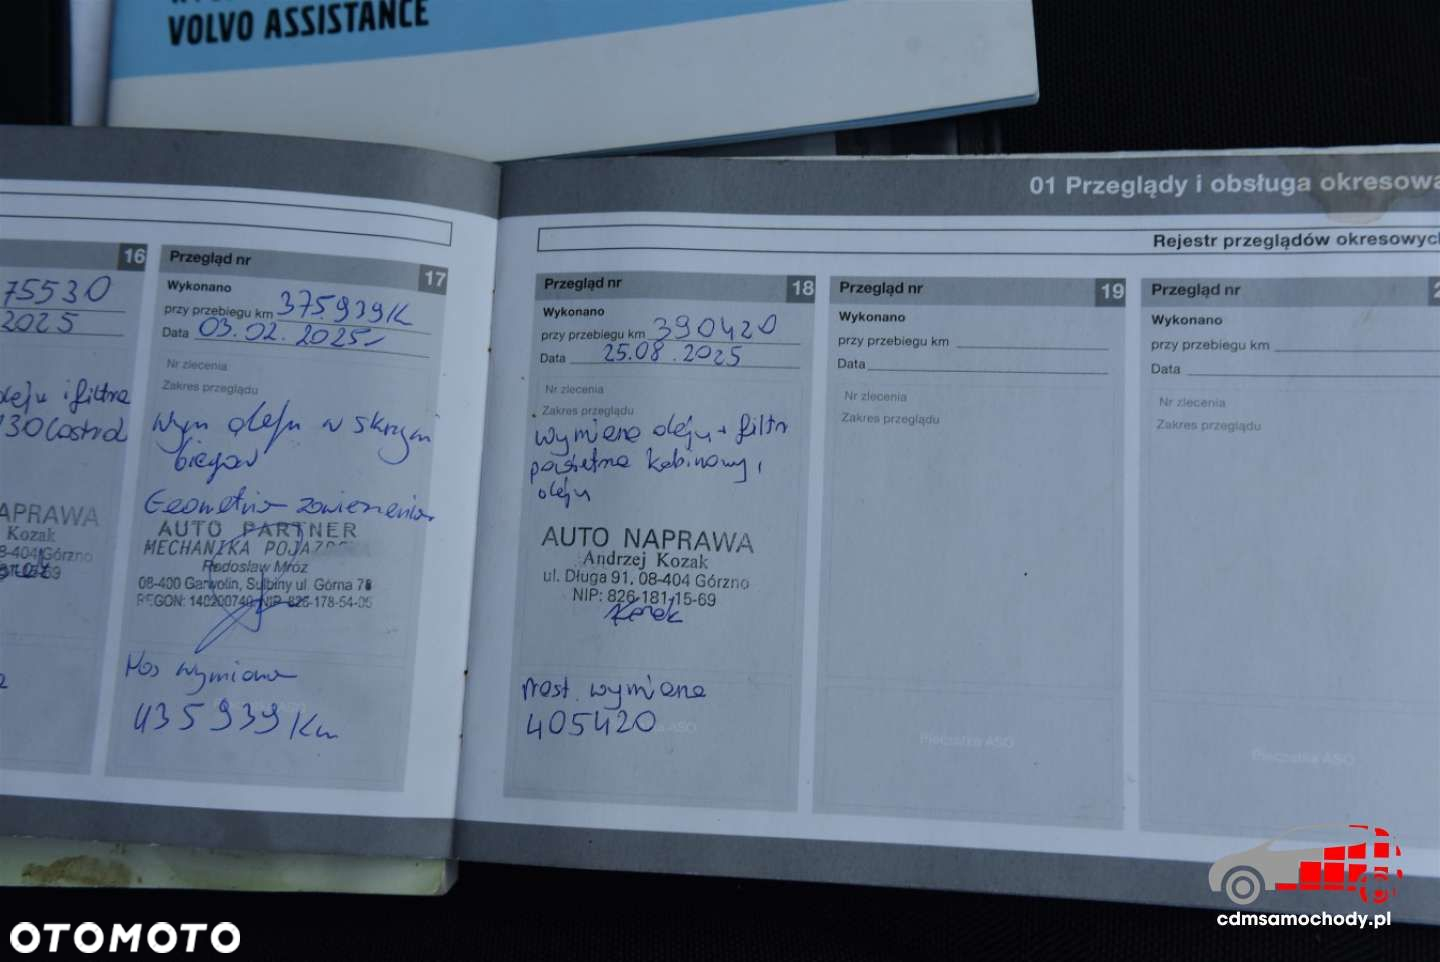 VOLVO ASSISTANCE
01 Przeglądy i obsługa okresowa
Rejestr przeglądów okresowych
16
75530
2025
oleju i filtra
Castrol
NAPRAWA
Kozak
08-404 Górzno
15-69
Przegląd nr 17
Wykonano
przy przebiegu km 375939K
Data 03.02.2025
Nr zlecenia
Zakres przeglądu
Wym oleju w skrzyni
biegów
Geometria zawieszenia
AUTO PARTNER
MECHANIKA POJAZDOWA
Radosław Mróz
08-400 Garwolin, Sulbiny ul. Górna 78
REGON: 140200740, NIP 826-178-54-05
Nas wymiana
435939 Km
Przegląd nr 18
Wykonano
przy przebiegu km 390420
Data 25.08.2025
Nr zlecenia
Zakres przeglądu
wymiana oleju + filtr
powietrza kabinowy i
oleju
AUTO NAPRAWA
Andrzej Kozak
ul. Długa 91, 08-404 Górzno
NIP: 826-181-15-69
Kozak
Nast. wymiana
405420
ASO
Przegląd nr 19
Wykonano
przy przebiegu km
Data
Nr zlecenia
Zakres przeglądu
Pieczątka ASO
Przegląd nr 2
Wykonano
przy przebiegu km
Data
Nr zlecenia
Zakres przeglądu
Pieczątka ASO
OTOMOTO
cdmsamochody.pl